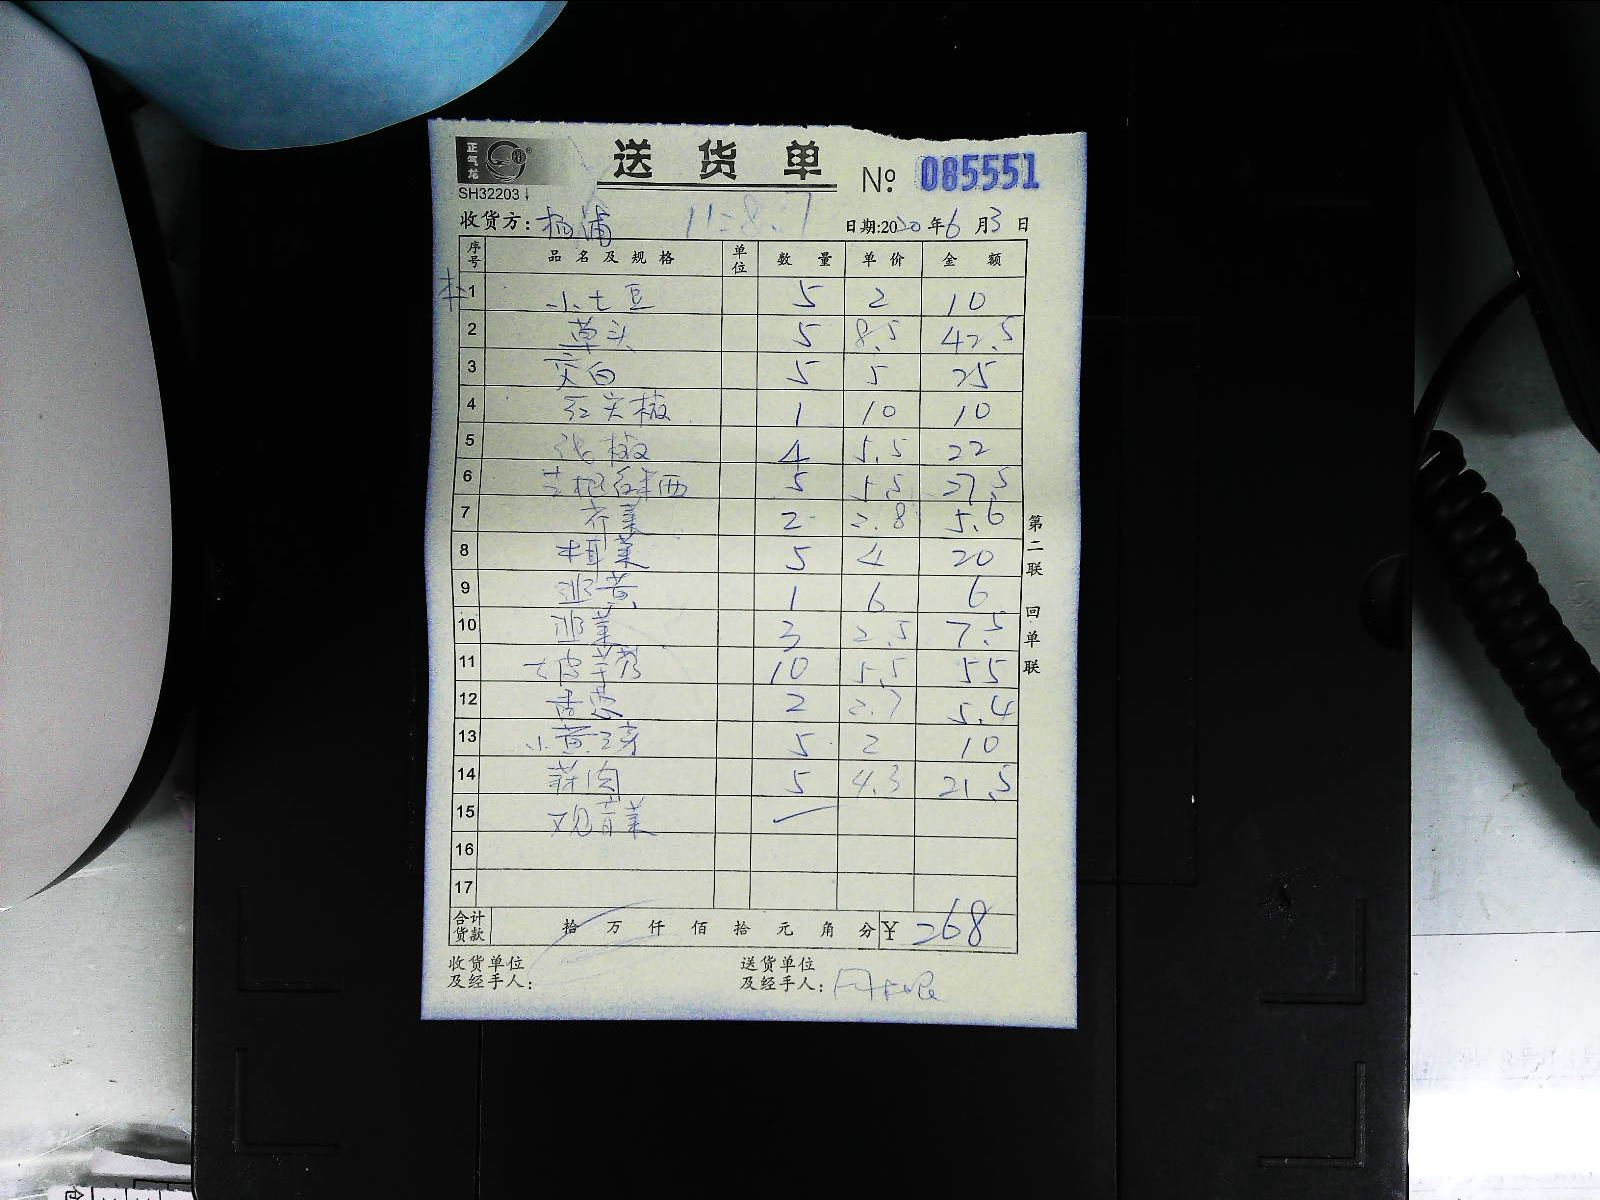 正气龙
送货单 № 085551
SH32203
收货方: 杨浦 11-8.7 日期:2020年6月3日
序号 品名及规格 单位 数量 单价 金额
1 小土豆 5 2 10
2 草头 5 8.5 42.5
3 茭白 5 5 25
4 红尖椒 1 10 10
5 椒 4 5.5 22
6 5 5.5 27.5
7 荠菜 2 2.8 5.6
8 5 4 20
9 韭黄 1 6 6
10 韭菜 3 2.5 7.5
11 10 5.5 55
12 香葱 2 2.7 5.4
13 小黄豆芽 5 2 10
14 5 4.3 21.5
15 观音菜
16
17
合计货款 拾 万 仟 佰 拾 元 角 分 ¥ 268
收货单位 送货单位
及经手人: 及经手人:
第二联 回单联